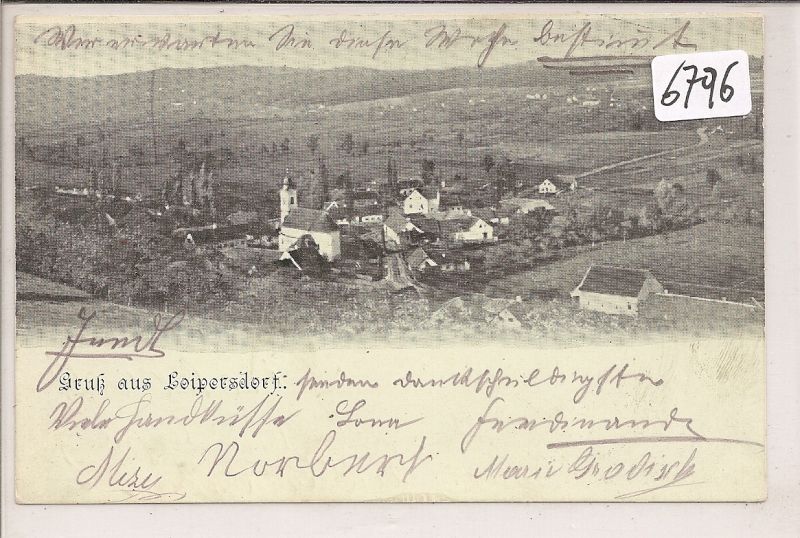 Wir erwarten Sie diese Woche bestimmt
6796
Gruß aus Loipersdorf: senden dankschuldigste
Viele Handküsse Lona Ferdinande
Mizzi Norbert Marie